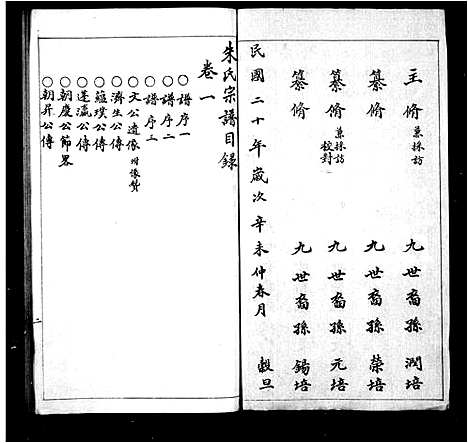 主脩 兼採訪 九世裔孫 潤培
纂脩 九世裔孫 榮培
纂脩 兼採訪校對 九世裔孫 元培
纂脩 九世裔孫 錫培
民國二十年歲次辛未仲春月 穀旦
朱氏宗譜目錄
卷一
○譜序一
○譜序二
○譜序三
○文公遺像 附像贊
○濟生公傳
○蘊璞公傳
○蓬瀛公傳
○朝慶公節畧
○朝昇公傳
一